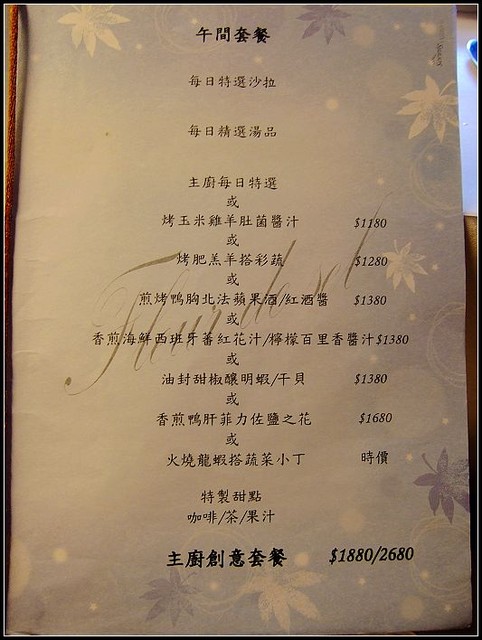 午間套餐
每日特選沙拉
每日精選湯品
主廚每日特選
或
烤玉米雞羊肚菌醬汁 $1180
或
烤肥羔羊搭彩蔬 $1280
或
煎烤鴨胸北法蘋果酒/紅酒醬 $1380
或
香煎海鮮西班牙蕃紅花汁/檸檬百里香醬汁 $1380
或
油封甜椒釀明蝦/干貝 $1380
或
香煎鴨肝菲力佐鹽之花 $1680
或
火燒龍蝦搭蔬菜小丁 時價
特製甜點
咖啡/茶/果汁
主廚創意套餐 $1880/2680
Fleur de sel